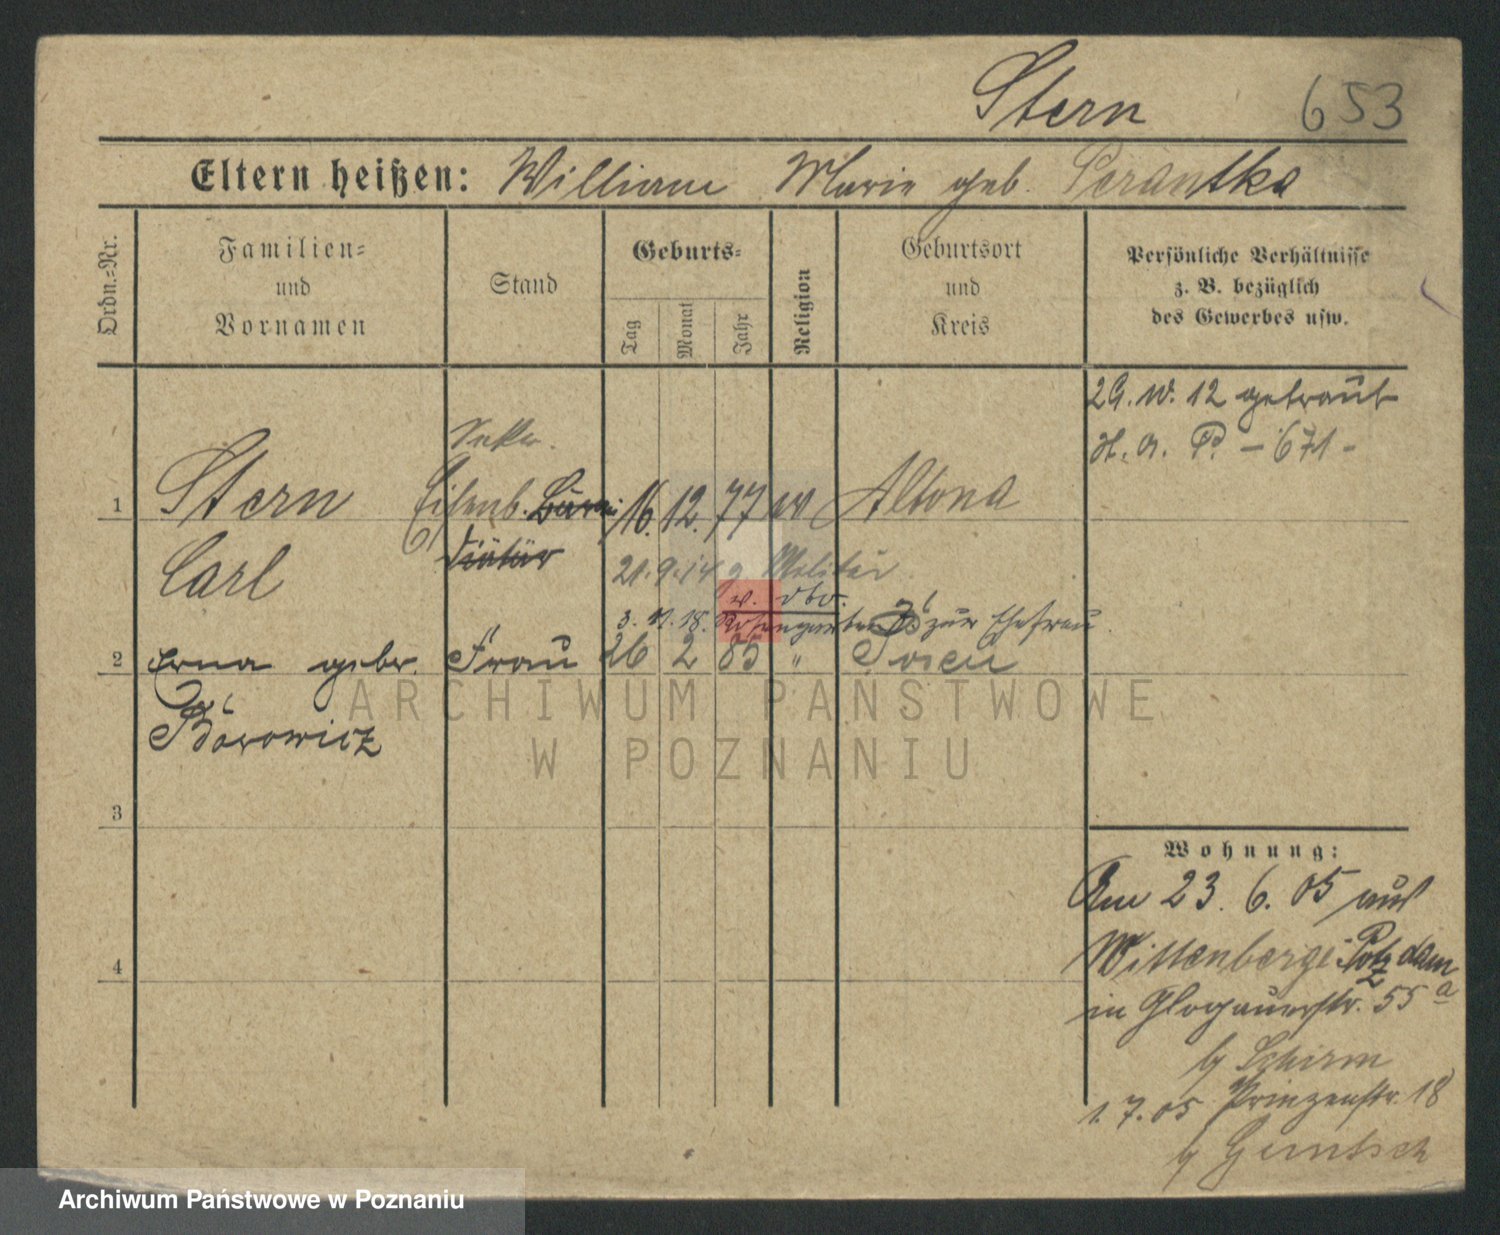 Stern 653
Eltern heißen: William Marie geb. Perantka
Ordn.-Nr.
Familien-
und
Vornamen
Stand
Geburts-
Tag
Monat
Jahr
Religion
Geburtsort
und
Kreis
Persönliche Verhältnisse
z. B. bezüglich
des Gewerbes usw.
29. 10. 12 getraut
H. A. P. – 671 –
Sekr.
1 Stern Eisenb. 16. 12. 77 Altona
Carl
21. 9. 14 z Militär
v. dto.
3. 11. 18. zur Ehefrau
2 Erna gebr. Frau 26 2 85 " Posen
Borowicz
3
4
Wohnung:
Am 23. 6. 05 aus
Wittenberge Potzdam
in Glogauerstr. 55 a
b/ Schirm
1. 7. 05 Prinzenstr. 18
b/ Gentsch
ARCHIWUM PAŃSTWOWE
W POZNANIU
Archiwum Państwowe w Poznaniu